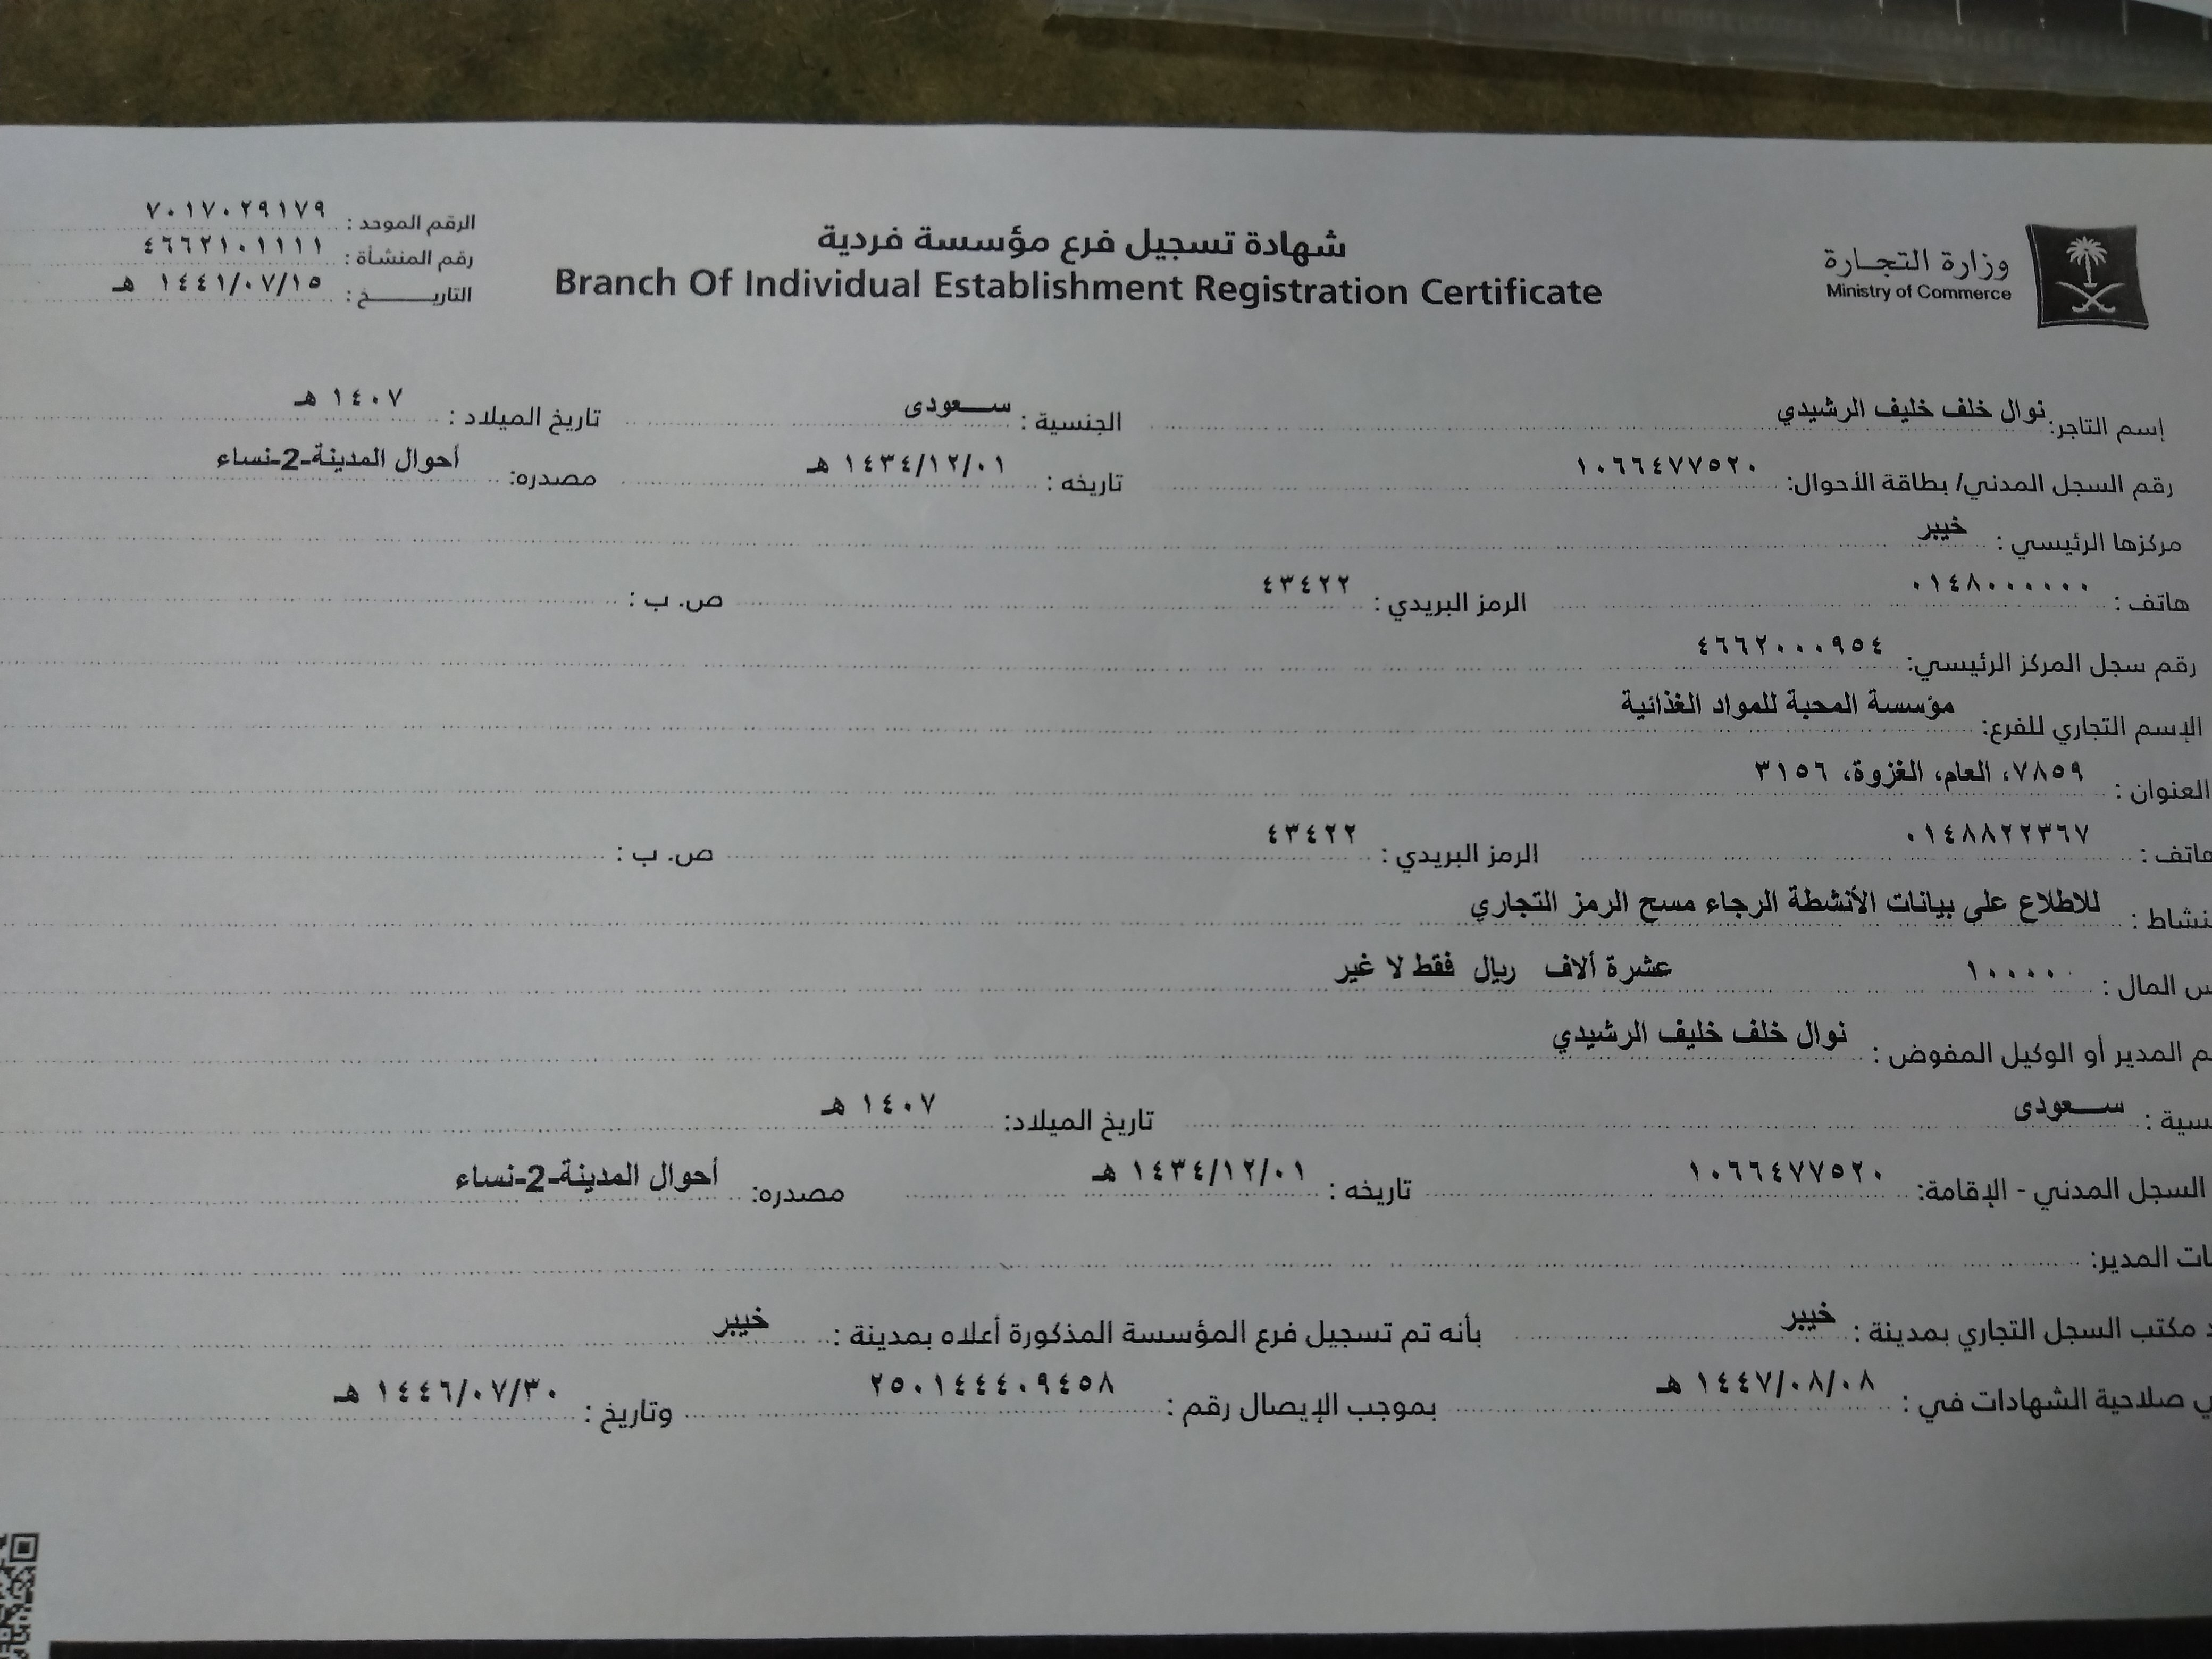 وزارة التجارة
Ministry of Commerce
شهادة تسجيل فرع مؤسسة فردية
Branch Of Individual Establishment Registration Certificate
الرقم الموحد : ٧٠١٧٠٢٩١٧٩
رقم المنشأة : ٤٦٦٢١٠١١١١
التاريخ : ١٤٤١/٠٧/١٥ هـ
إسم التاجر: نوال خلف خليف الرشيدي الجنسية : سعودى تاريخ الميلاد : ١٤٠٧ هـ
رقم السجل المدني/ بطاقة الأحوال: ١٠٦٦٤٧٧٥٢٠ تاريخه : ١٤٣٤/١٢/٠١ هـ مصدره: أحوال المدينة-2-نساء
مركزها الرئيسي : خيبر
هاتف : ٠١٤٨٠٠٠٠٠٠ الرمز البريدي : ٤٣٤٢٢ ص. ب :
رقم سجل المركز الرئيسي: ٤٦٦٢٠٠٠٩٥٤
الإسم التجاري للفرع: مؤسسة المحبة للمواد الغذائية
العنوان : ٧٨٥٩، العام، الغزوة، ٣١٥٦
هاتف : ٠١٤٨٨٢٢٣٦٧ الرمز البريدي : ٤٣٤٢٢ ص. ب :
نشاط : للاطلاع على بيانات الأنشطة الرجاء مسح الرمز التجاري
س المال : ١٠٠٠٠ عشرة ألاف ريال فقط لا غير
م المدير أو الوكيل المفوض : نوال خلف خليف الرشيدي
سية : سعودى تاريخ الميلاد: ١٤٠٧ هـ
السجل المدني - الإقامة: ١٠٦٦٤٧٧٥٢٠ تاريخه : ١٤٣٤/١٢/٠١ هـ مصدره: أحوال المدينة-2-نساء
ات المدير:
د مكتب السجل التجاري بمدينة : خيبر بأنه تم تسجيل فرع المؤسسة المذكورة أعلاه بمدينة : خيبر
ي صلاحية الشهادات في : ١٤٤٧/٠٨/٠٨ هـ بموجب الإيصال رقم : ٢٥٠١٤٤٤٠٩٤٥٨ وتاريخ : ١٤٤٦/٠٧/٣٠ هـ